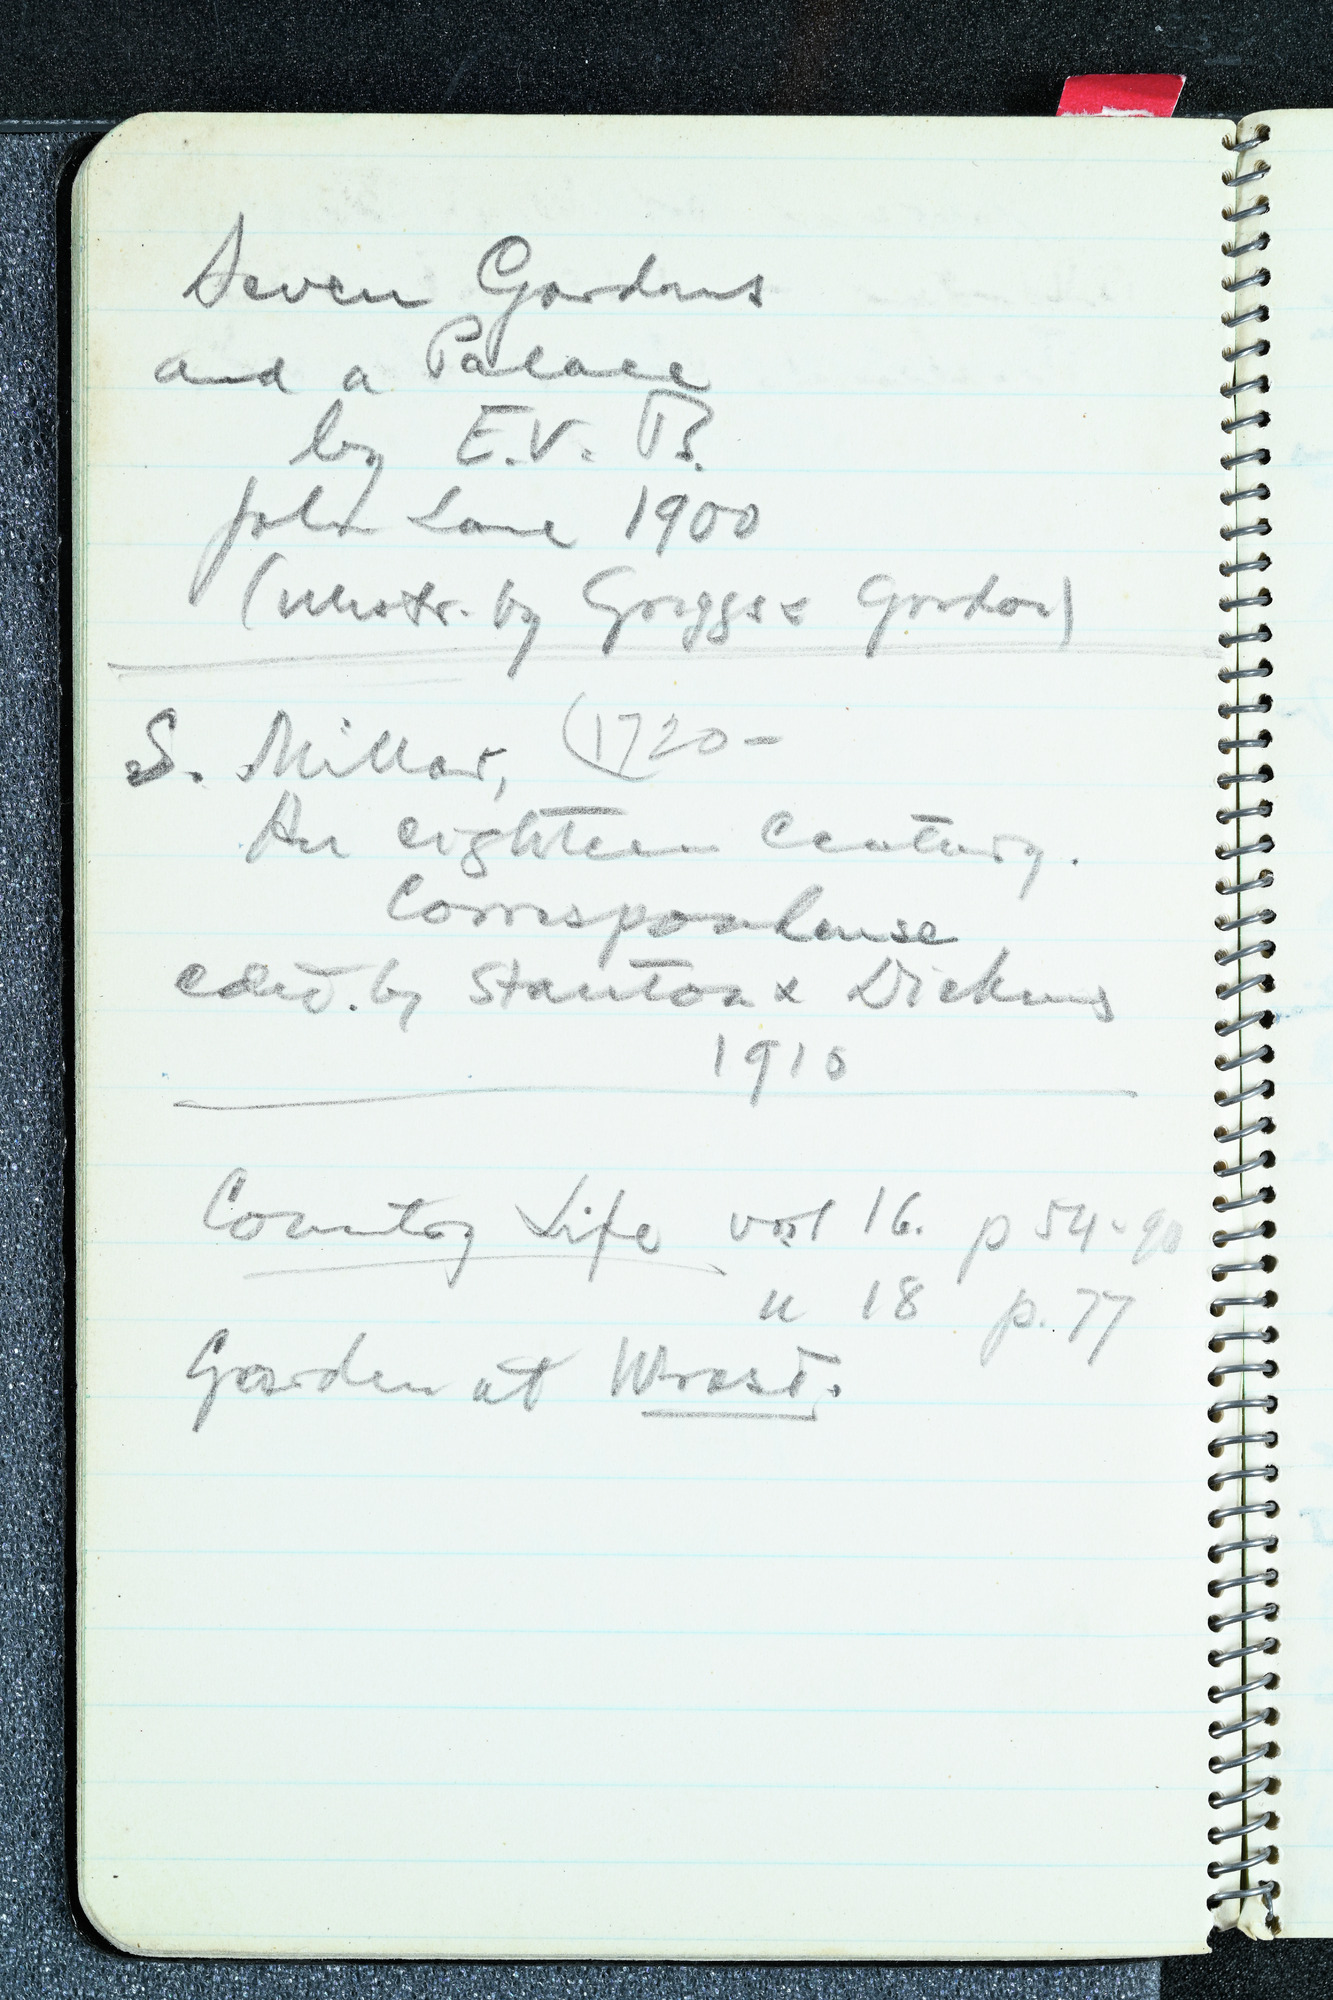 Seven Gardens
and a Palace
by E.V. B.
John Lane 1900
(illustr. by Griggs & Gordon)
S. Millar, (1720-
An eighteen Century.
Correspondense
edit. by Stanton & Dickens
1910
Country Life vol 16. p 54-90
" 18 p. 77
Garden at Wrest.